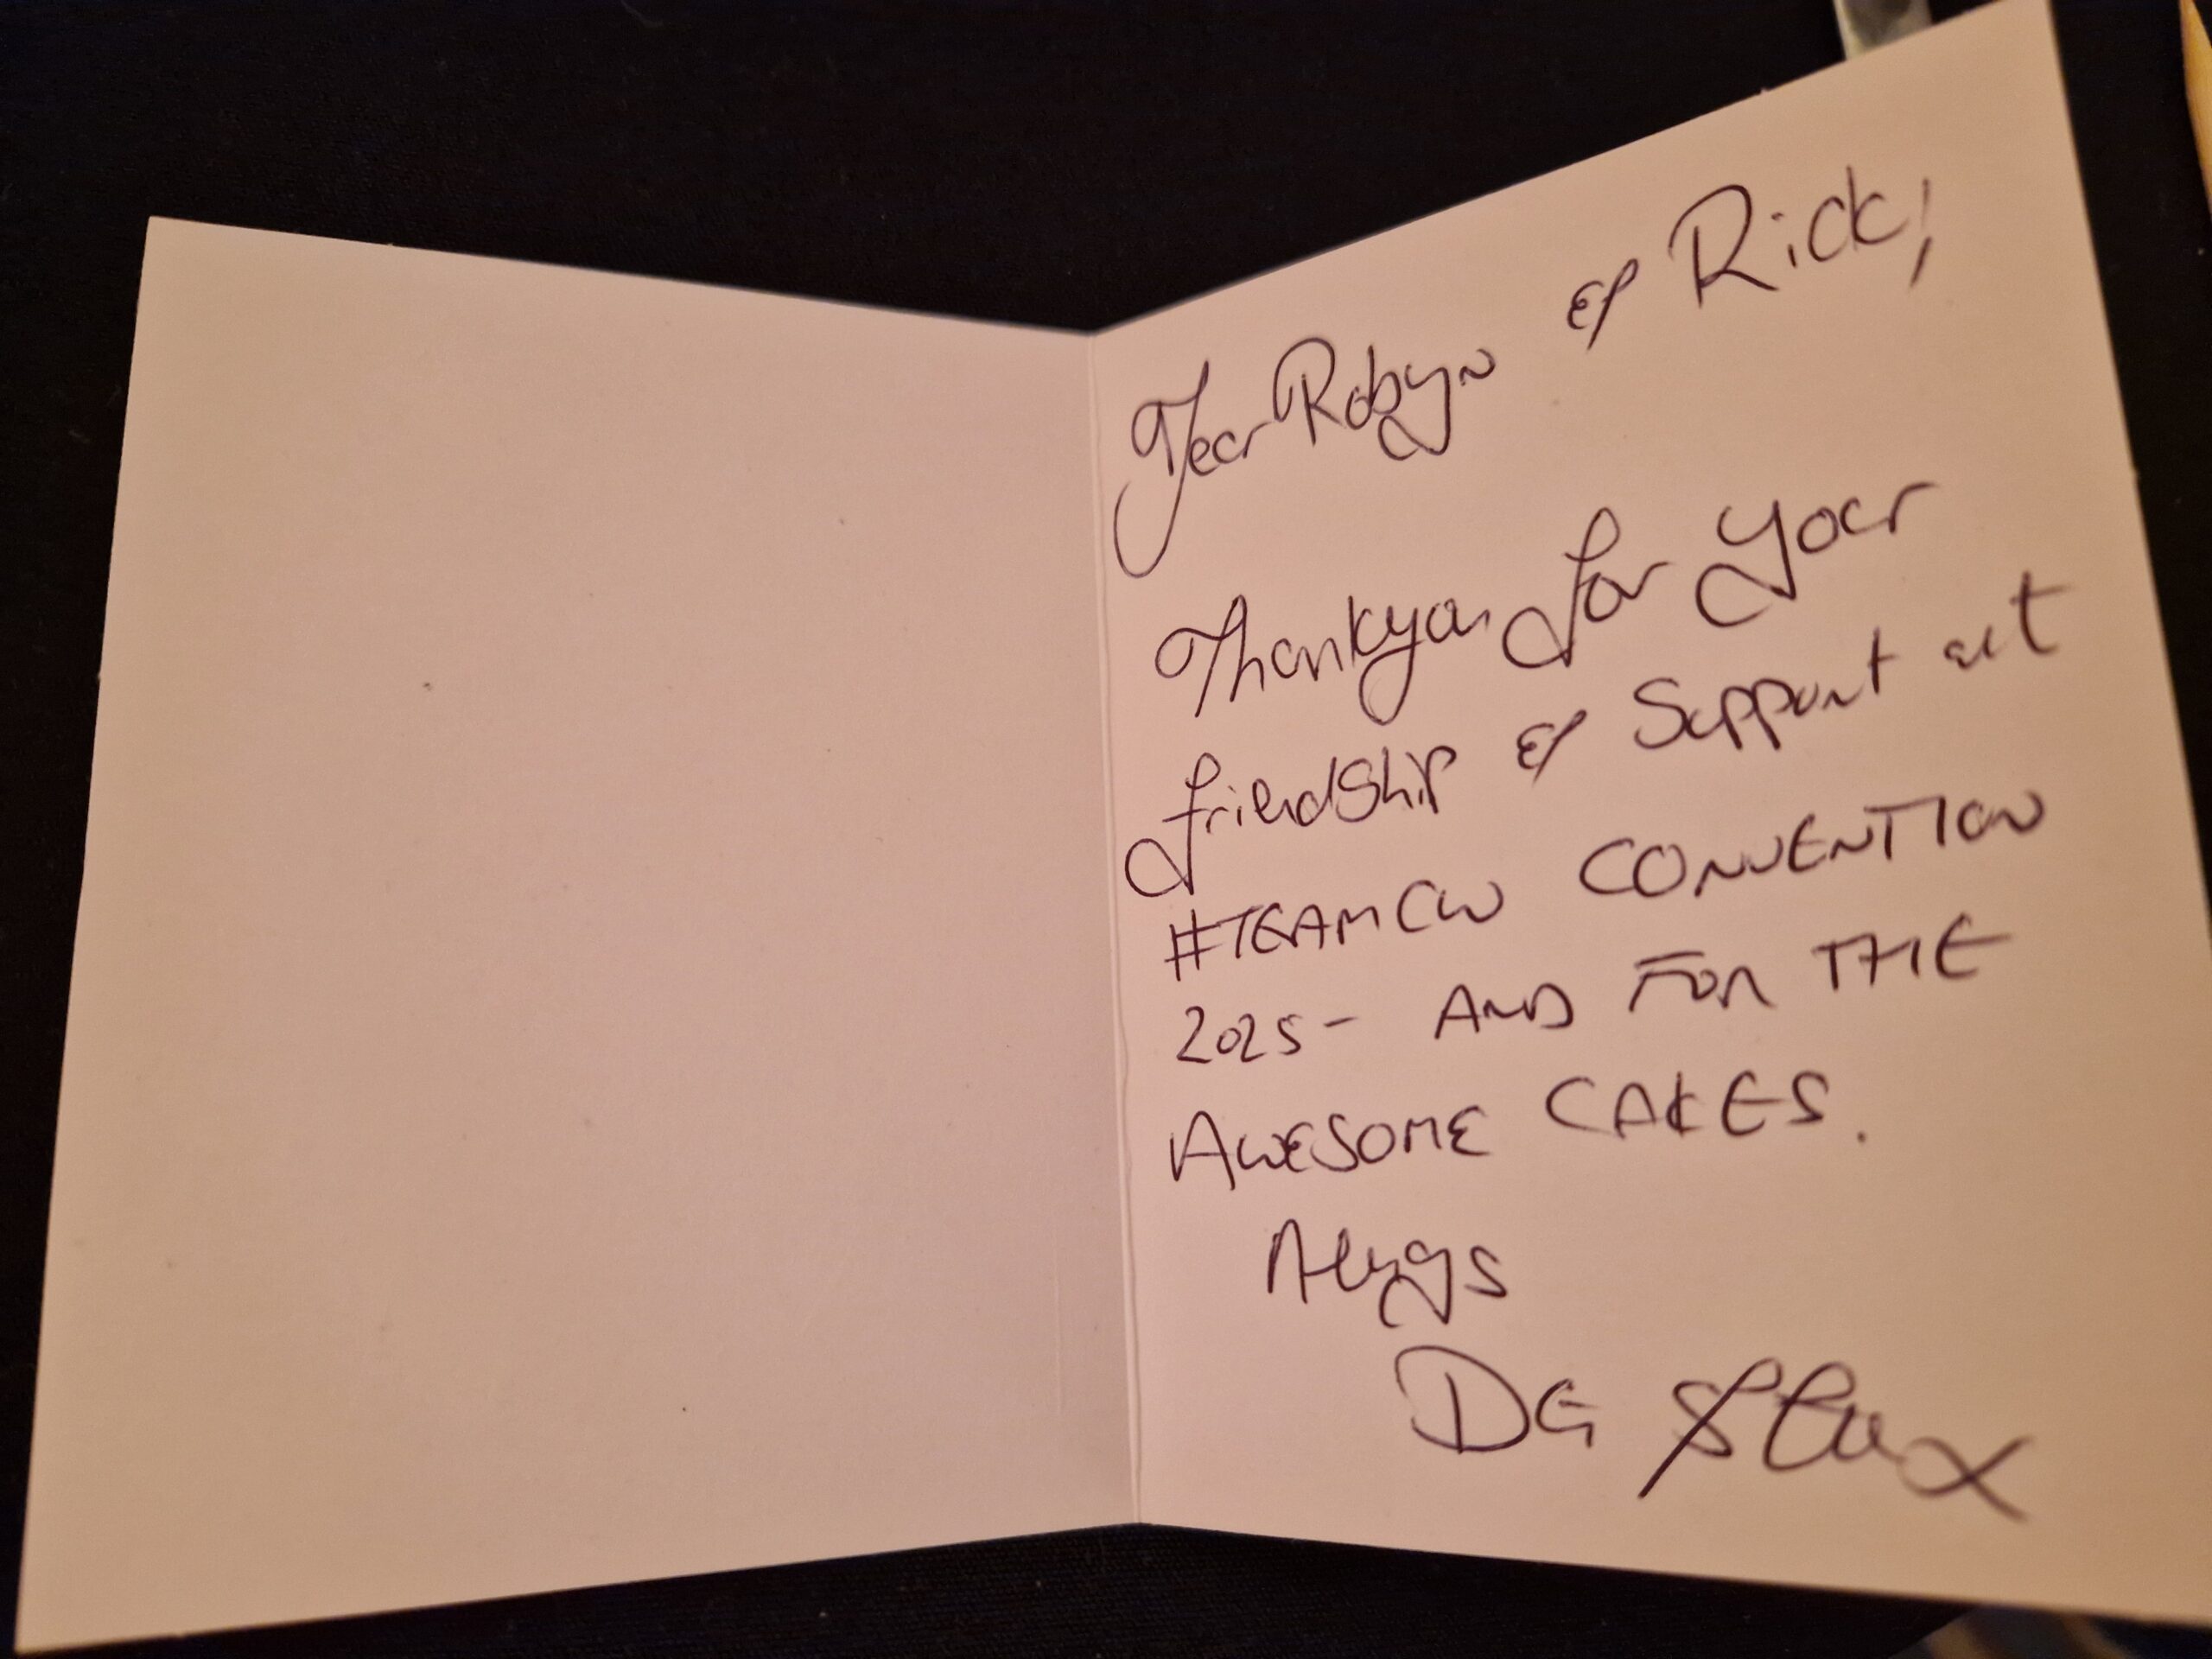 Dear Robyn & Rick,
Thankyou for your
friendship & Support at
#TEAMCW CONVENTION
2025 - AND FOR THE
AWESOME CAKES.
Hugs
DG